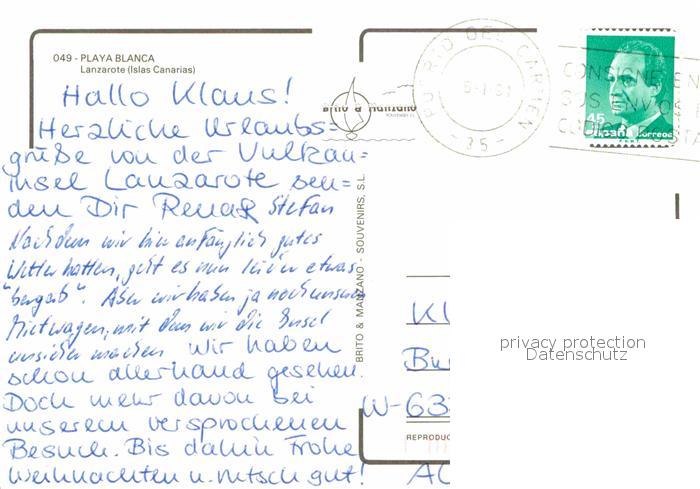 049 - PLAYA BLANCA
Lanzarote (Islas Canarias)
Hallo Klaus!
Herzliche Urlaubs=
grüße von der Vulkan=
insel Lanzarote sen=
den Dir Renate Stefan
Nachdem wir hier anfänglich gutes
Wetter hatten, geht es nun leider etwas
"bergab". Aber wir haben ja noch unseren
Mietwagen, mit dem wir die Insel
unsicher machen. Wir haben
schon allerhand gesehen.
Doch mehr davon bei
unserem versprochenen
Besuch. Bis dahin Frohe
Weihnachten u. rutsch gut!
Brito & Manzano
BRITO & MANZANO - SOUVENIRS, S.L.
PUERTO DEL CARMEN
- 35 -
CONSIGNE EN
SUS ENVIOS
45
España correos
Kl
Bu
W-63
REPRODUC
privacy protection
Datenschutz